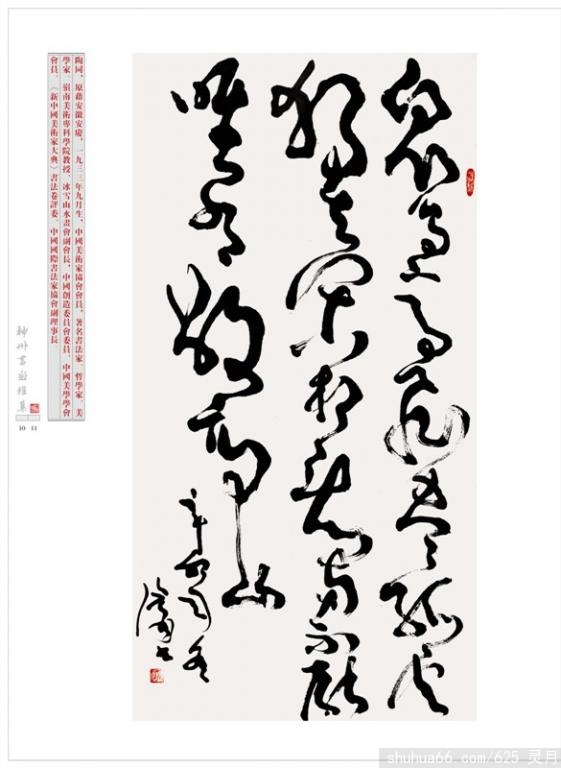 眾鳥高飛盡孤雲
獨去閒相看兩不厭
唯有敬亭山
陶同，原籍安徽安慶，一九三三年九月生，中國美術家協會會員，著名書法家、哲學家、美
學家，嶺南美術專科學院教授，冰雪山水畫會副會長，中國創造委員會委員，中國美學學會
會員，《新中國美術家大典》書法卷評委，中國國際書法家協會副理事長
神州書畫雅集
10 11
shuhua66.com/625 灵月